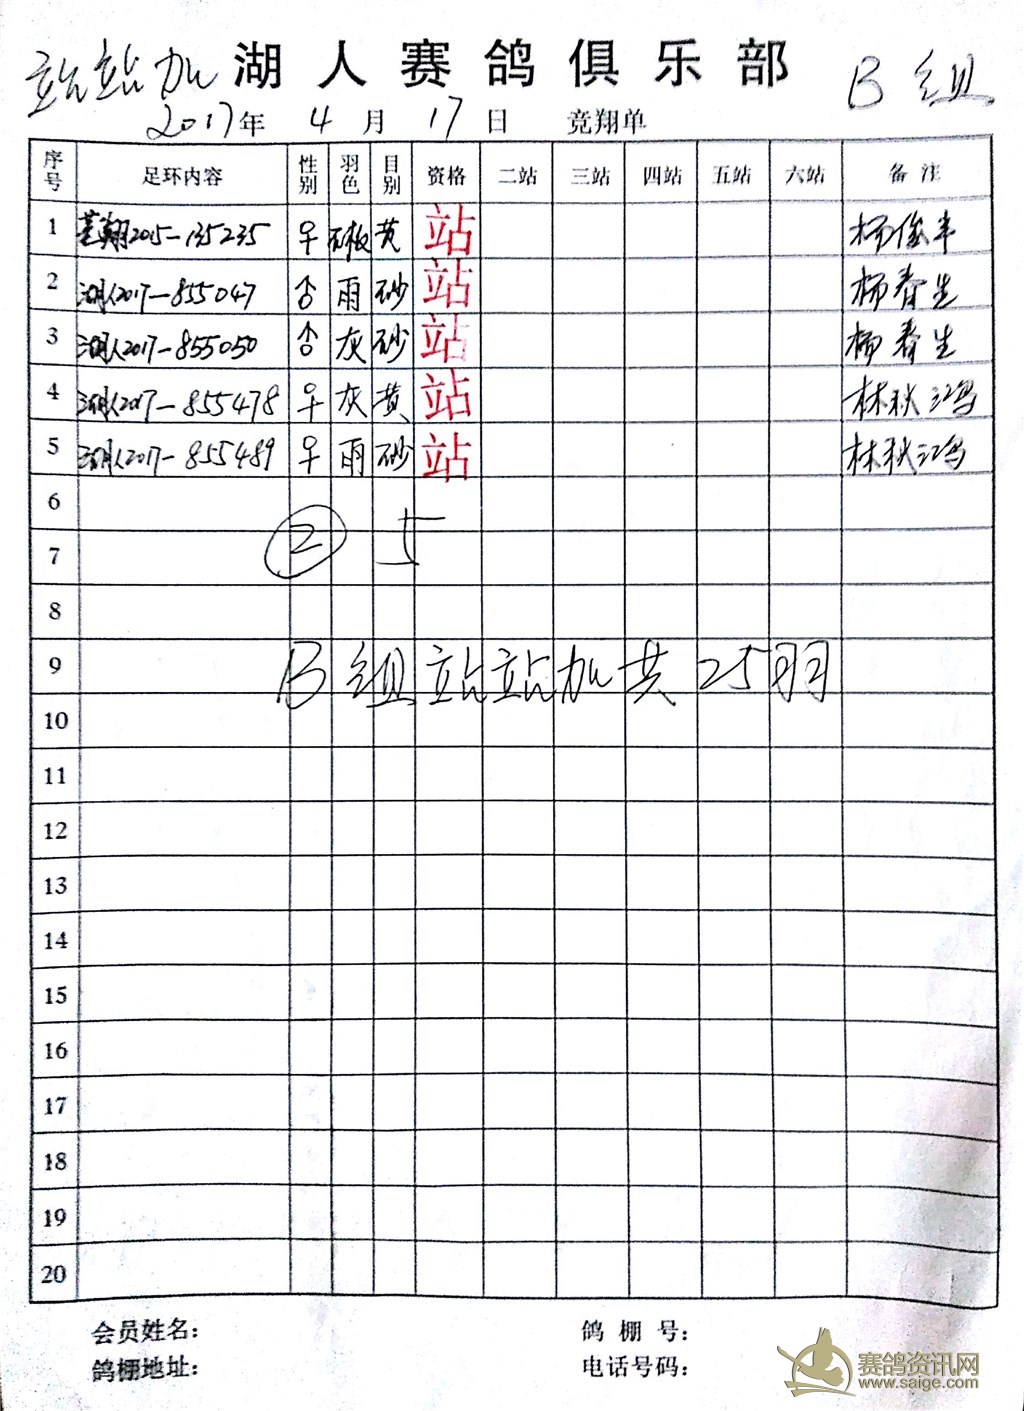 站站加 湖人赛鸽俱乐部 B组
2017年 4月 17日 竞翔单
序号 足环内容 性别 羽色 目别 资格 二站 三站 四站 五站 六站 备注
1 翔2015-135235 ♀ 石板 黄 站 杨俊丰
2 湖人2017-855047 ♂ 雨 砂 站 杨春生
3 湖人2017-855050 ♂ 灰 砂 站 杨春生
4 湖人2017-855478 ♀ 灰 黄 站 林秋鸿
5 湖人2017-855489 ♀ 雨 砂 站 林秋鸿
6
7 ② 5
8
9 B组站站加共25羽
10
11
12
13
14
15
16
17
18
19
20
会员姓名： 鸽棚号：
鸽棚地址： 电话号码：
赛鸽资讯网
www.saige.com